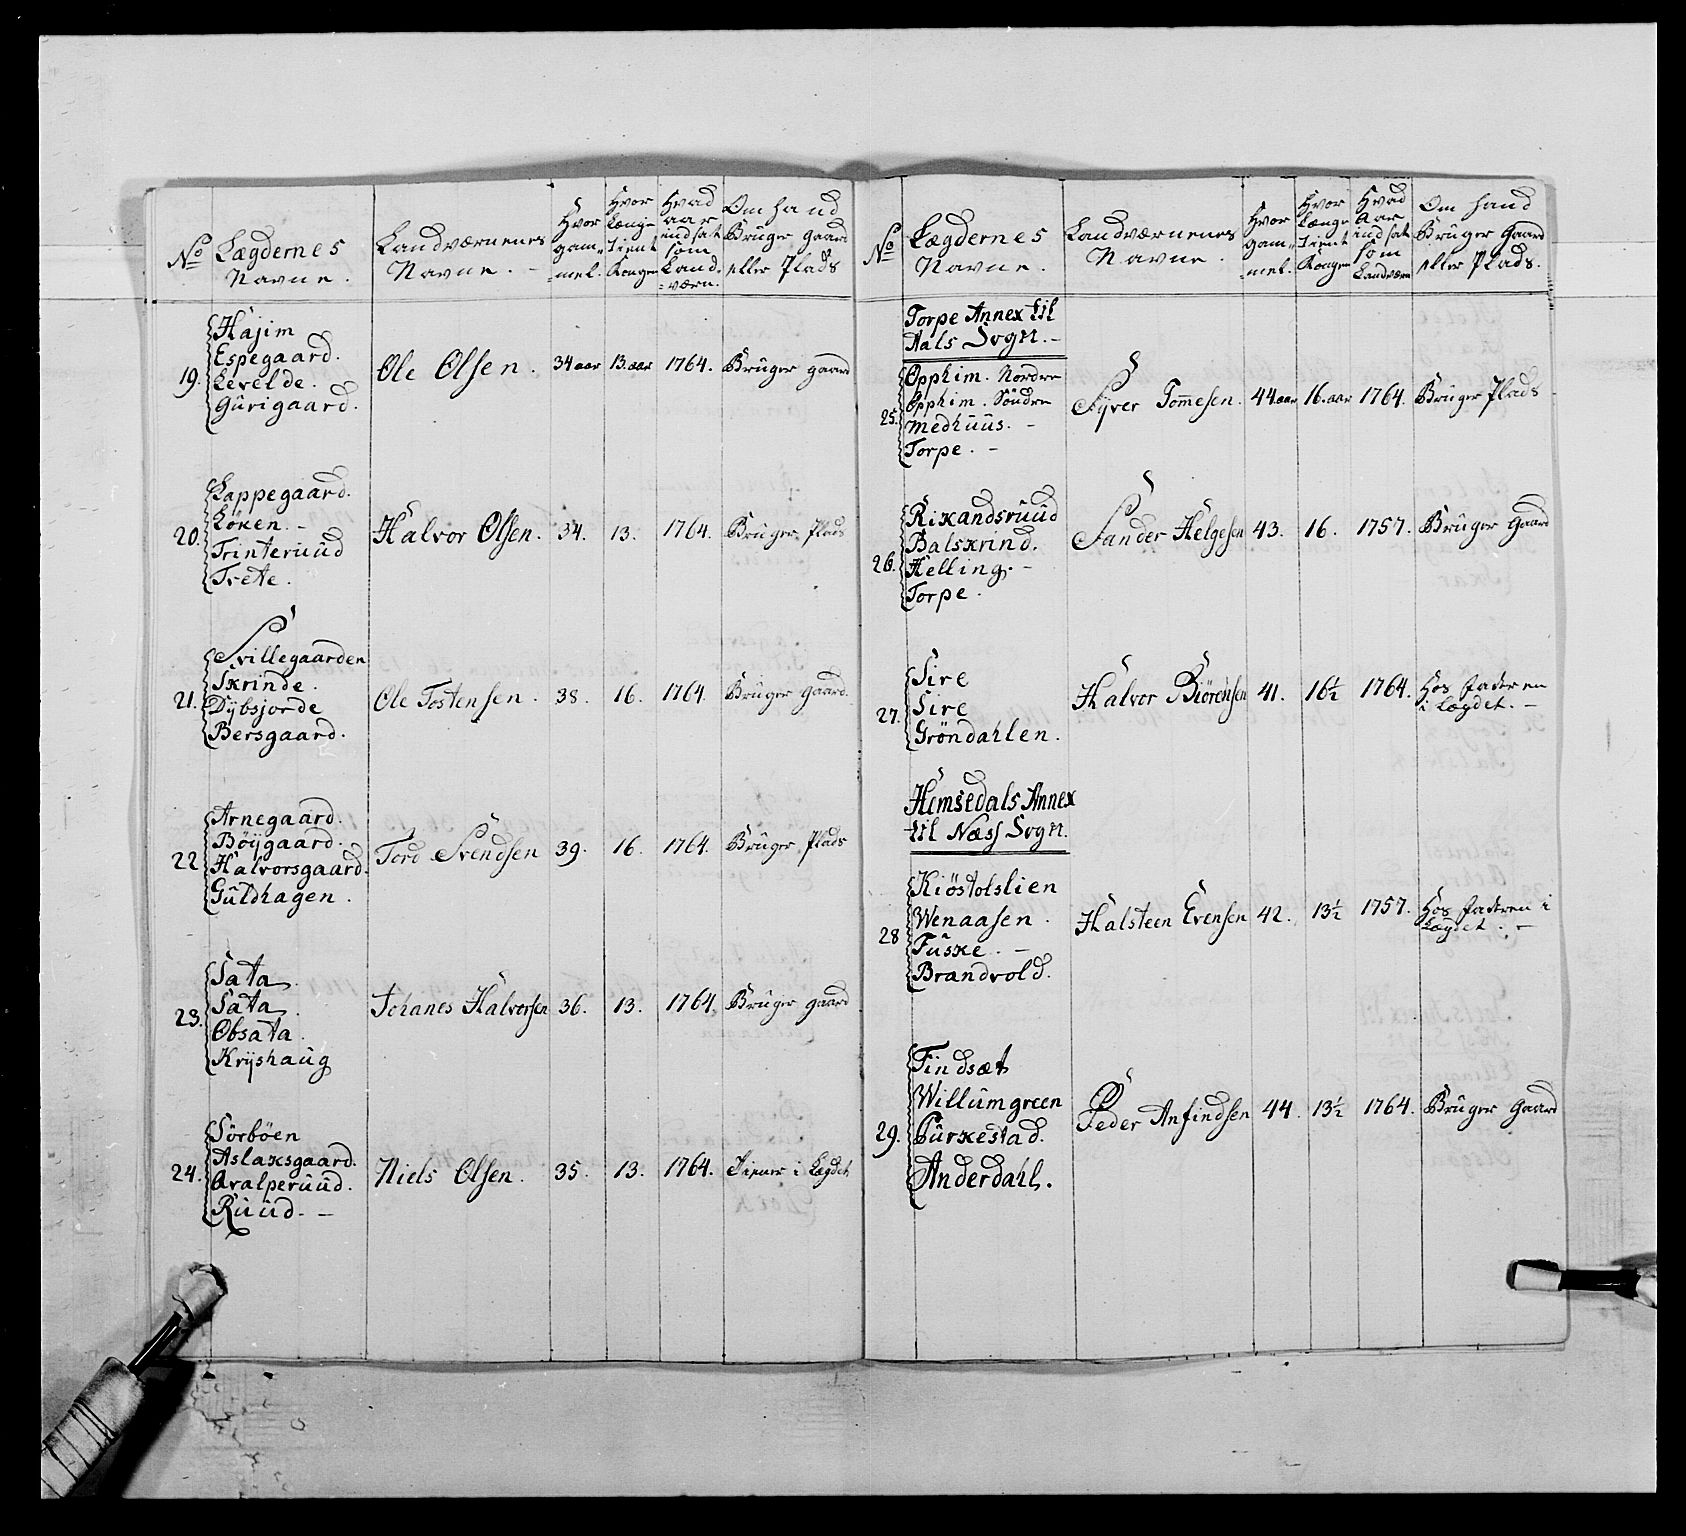 No
Lægdernes
Navne.
Landværnenes
Navne. -
Hvor
gam=
=mel.
Hvor
Længe
Tient
Kongen
Hvad
aar
indsat
som
Land=
=værn.
Om hand
Brüger gaard
eller Plads
19.
Hajim
Espegaard.
Levelde.
Gürigaard.
Ole Olsen. 34 aar 13. aar 1764. Brüger gaard
20.
Lappegaard.
Löken. -
Trinteruud
Tvete.
Halvor Olsen. 34. 13. 1764. Brüger Plads
21.
Svillegaarden
Skrinde.
Dÿbsjorde
Bersgaard.
Ole Tostensen. 38. 16. 1764. Brüger gaard.
22
Arnegaard.
Böÿgaard.
Halvorsgaard.
Güldhagen.
Tord Svendsen 39. 16. 1764. Brüger Plads
23.
Sata.
Sata.
Obsata.
Krÿshaug
Johanes Halvorsen 36. 13. 1764. Brüger gaard
24.
Sörböen
Aslaksgaard.
Aralperuud.
Ruud. -
Niels Olsen. 35. 13. 1764. Tiener i Lægdet
No
Lægdernes
Navne.
Landværnenes
Navne.
Hvor
gam=
=mel.
Hvor
Længe
Tient
Kongen
Hvad
Aar
indsat
som
Landværn
Om hand
Brüger Gaard
eller Plads.
Torpe Annex til
Aals Sogn. -
25.
Opphim. Nordre
Opphim. Söndre
Medhüüs. -
Torpe. -
Syver Tom̄esen. 44. aar 16. aar 1764. Brüger Plads
26.
Rikandsruud
Balskrind.
Helling. -
Torpe.
Sander Helgesen 43. 16. 1757. Brüger Gaard
27.
Sire
Sire
Gröndahlen.
Halvor Biörensen 41. 16½ 1764. Hos Faderen
i Lægdet. -
Hemsedals Annex
til Næss Sogn.
28
Kiöstolslien
Wenaasen.
Tüske. -
Brandvold.
Halsteen Evensen 42. 13½ 1757. Hos Faderen i
Lægdet. -
29.
Findsæt
Willumgreen
Pürkestad.
Anderdahl.
Peder Anfindsen 44. 13½ 1764. Brüger Gaard